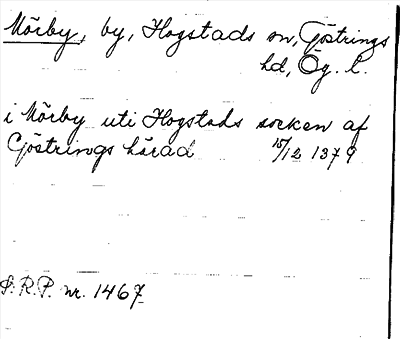 Mörby, by, Hogstads sn, Göstrings
hd, Ög. l.
i Mörby uti Hogstads socken af
Göstrings härad 15/12 1379
S.R.P. nr. 1467